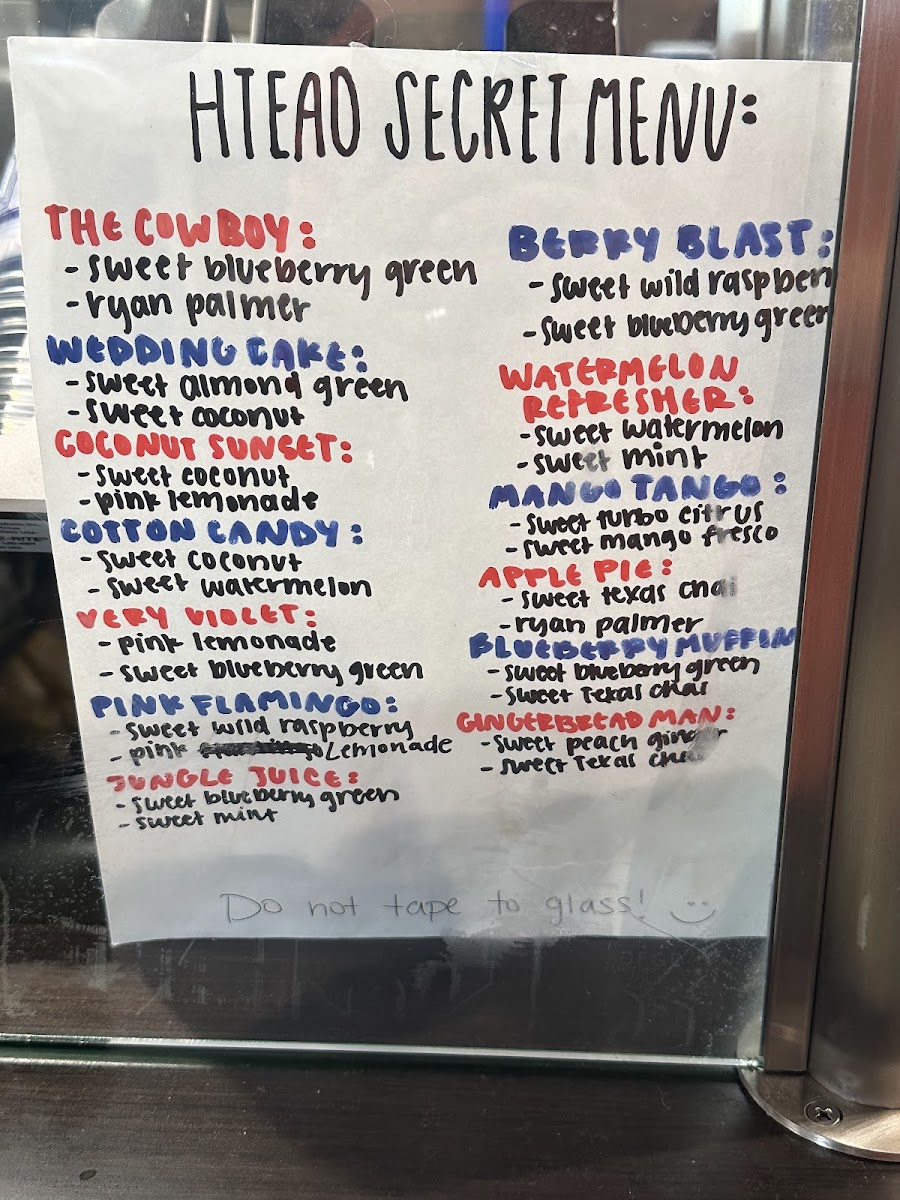 HTEAO SECRET MENU:
THE COWBOY:
- sweet blueberry green
- ryan palmer
WEDDING CAKE:
- sweet almond green
- sweet coconut
COCONUT SUNSET:
- sweet coconut
- pink lemonade
COTTON CANDY:
- sweet coconut
- sweet watermelon
VERY VIOLET:
- pink lemonade
- sweet blueberry green
PINK FLAMINGO:
- sweet wild raspberry
- pink Lemonade
JUNGLE JUICE:
- sweet blueberry green
- sweet mint
BERRY BLAST:
- sweet wild raspberry
- sweet blueberry green
WATERMELON
REFRESHER:
- sweet watermelon
- sweet mint
MANGO TANGO:
- sweet turbo citrus
- sweet mango fresco
APPLE PIE:
- sweet texas chai
- ryan palmer
BLUEBERRY MUFFIN
- sweet blueberry green
- sweet Texas chai
GINGERBREAD MAN:
- sweet peach ginger
- sweet Texas chai
Do not tape to glass!